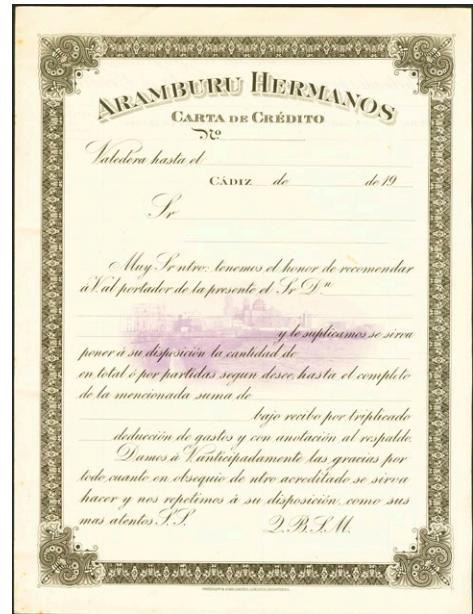 ARAMBURU HERMANOS
CARTA DE CRÉDITO
Nº
Valedera hasta el
CÁDIZ de de 19
Sr
Muy Sr ntro: tenemos el honor de recomendar
à V. al portador de la presente el Sr Dⁿ
y le suplicamos se sirva
poner à su disposición la cantidad de
en total ó por partidas segun desee, hasta el completo
de la mencionada suma de
bajo recibo por triplicado
deducción de gastos y con anotación al respalde.
Damos à V. anticipadamente las gracias por
todo cuanto en obsequio de ntro acreditado se sirva
hacer y nos repetimos à su disposición como sus
mas atentos S.S. Q.B.S.M.